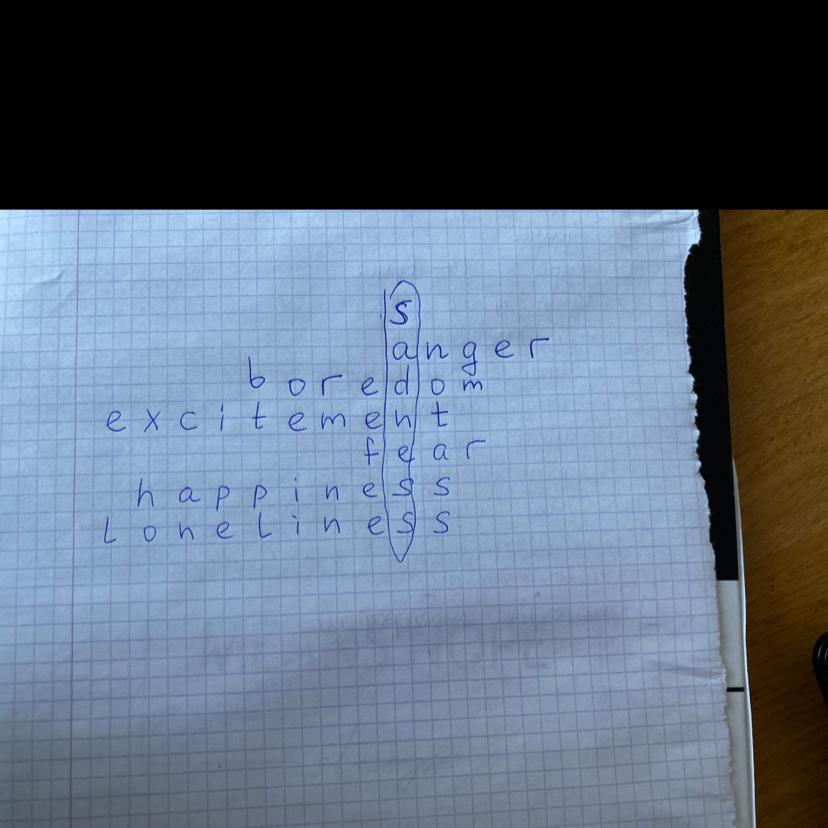 s
anger
boredom
excitement
fear
happiness
loneliness